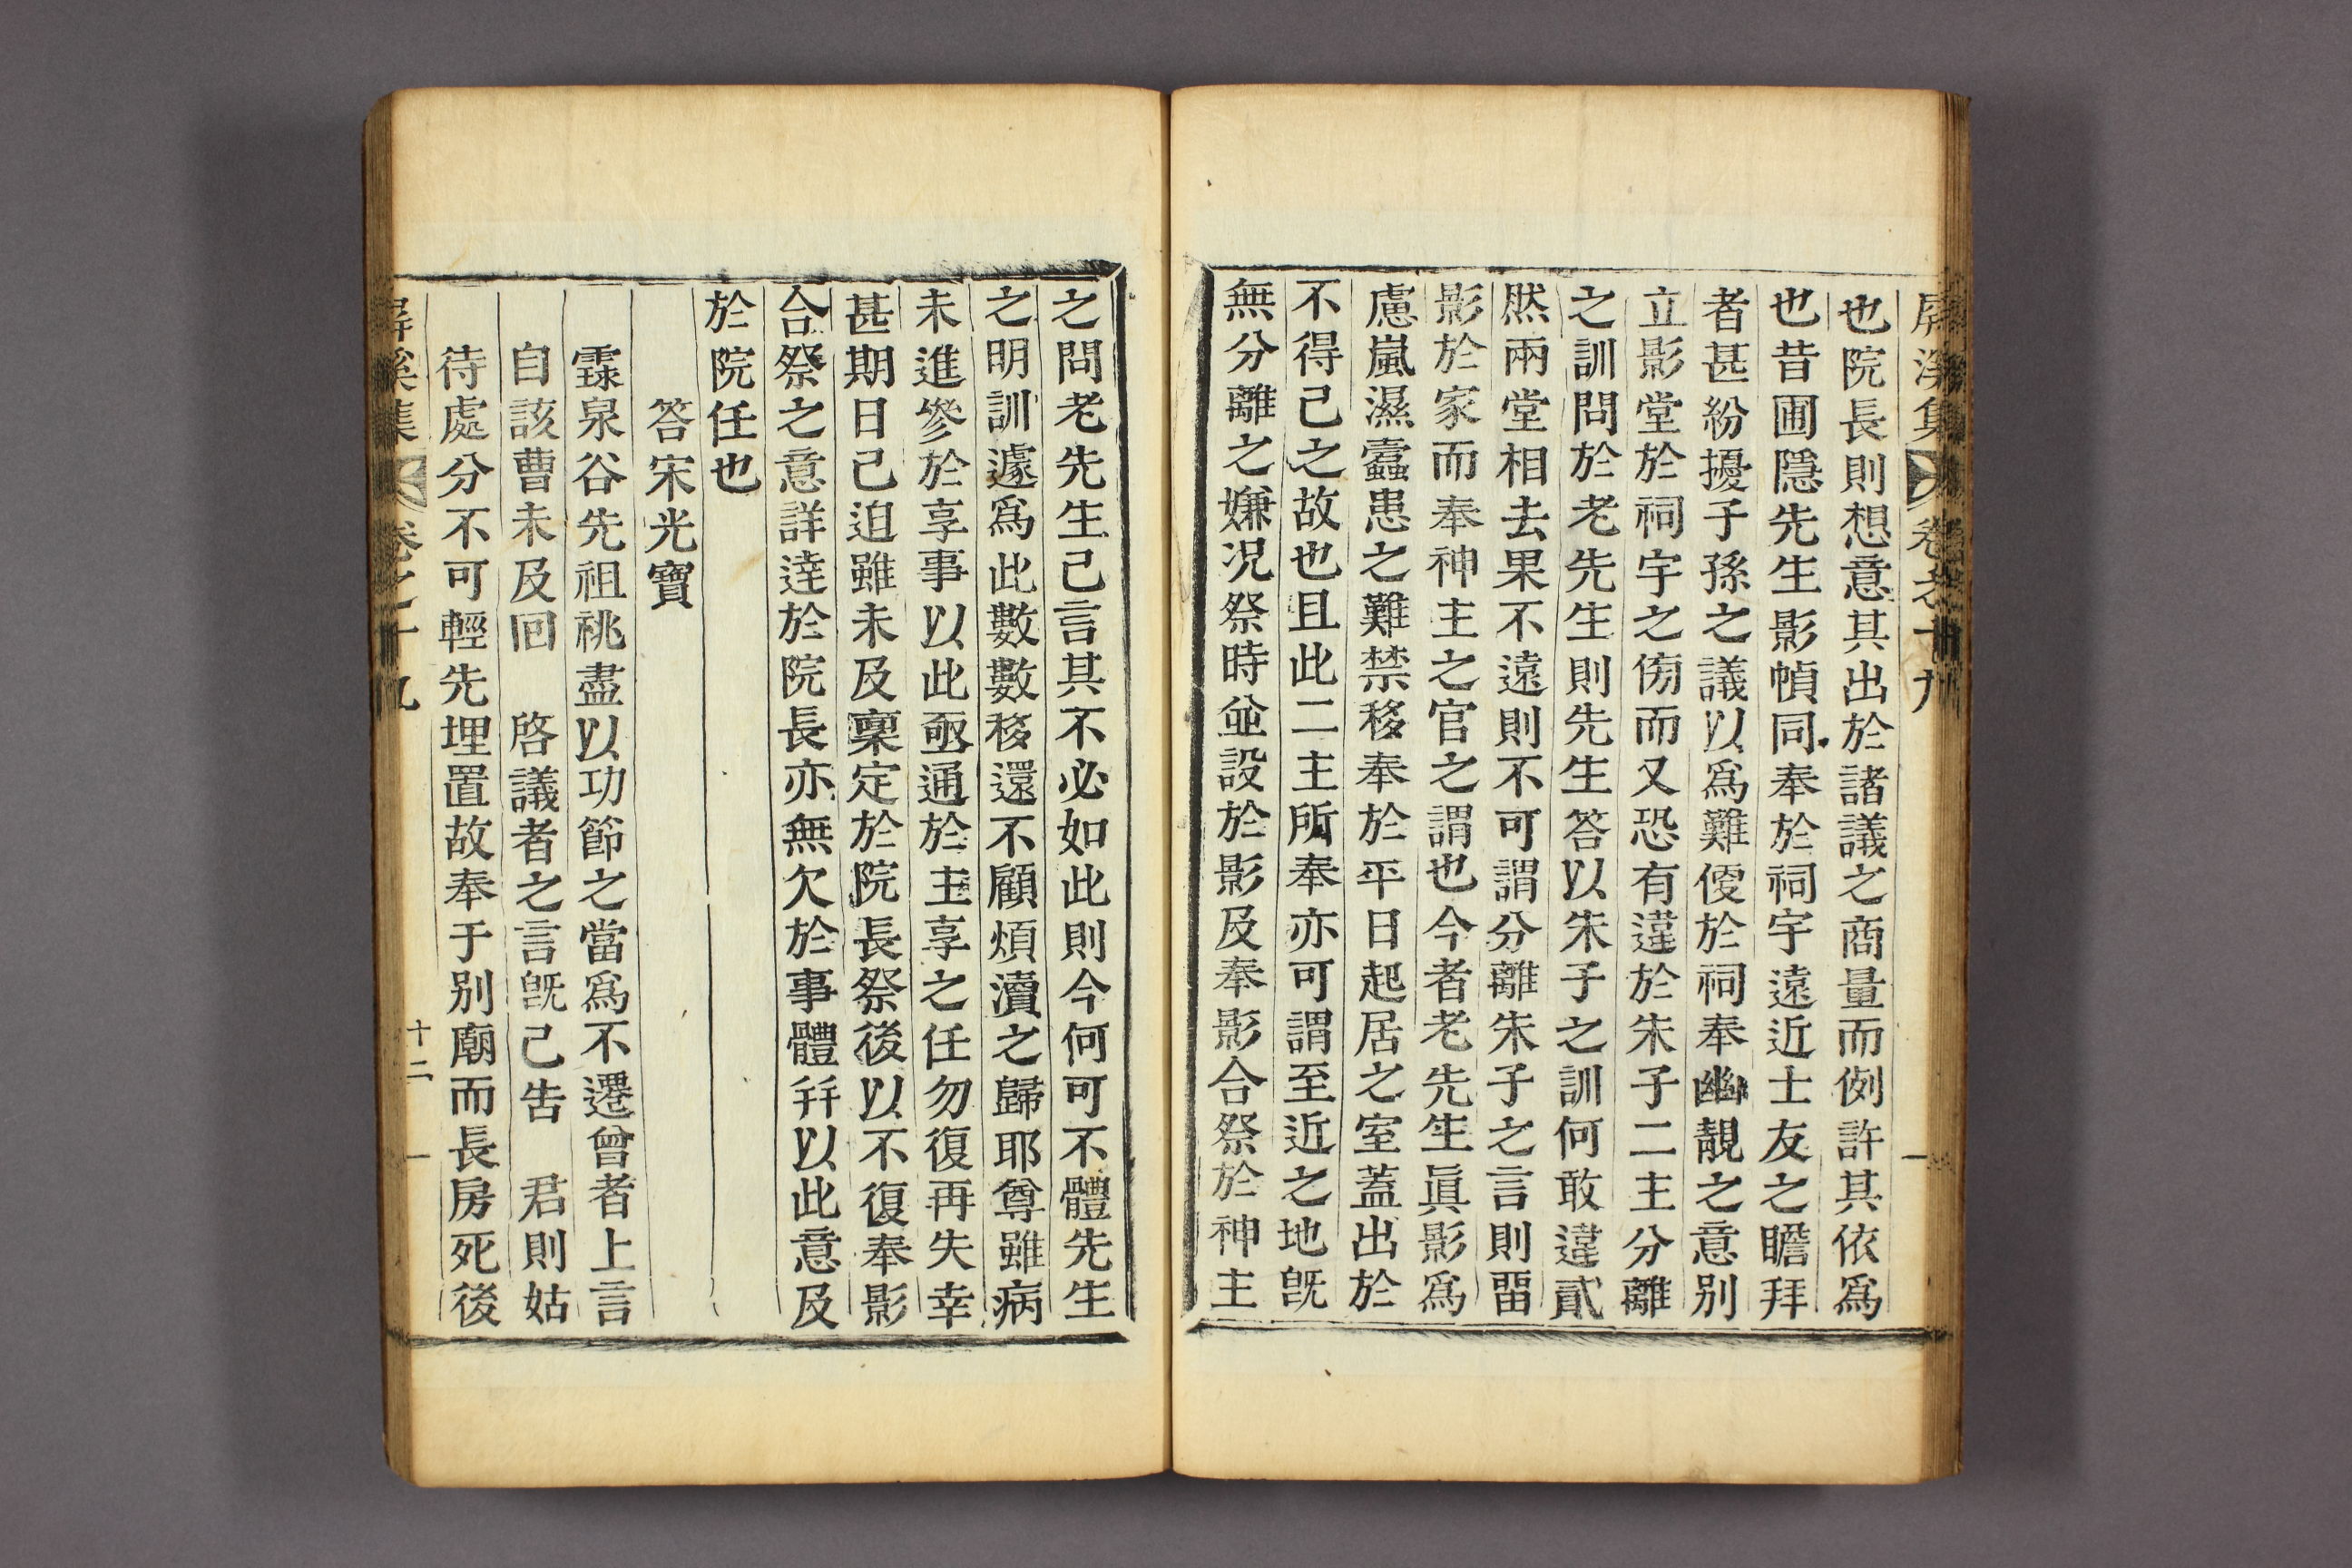 屛溪集 卷之十九
也院長則想意其出於諸議之商量而例許其依爲
也昔圃隱先生影幀同奉於祠宇遠近士友之瞻拜
者甚紛擾子孫之議以爲難便於祠奉幽靚之意别
立影堂於祠宇之傍而又恐有違於朱子二主分離
之訓問於老先生則先生答以朱子之訓何敢違貳
然兩堂相去果不遠則不可謂分離朱子之言則畱
影於家而奉神主之官之謂也今者老先生眞影爲
慮嵐濕蠧患之難禁移奉於平日起居之室蓋出於
不得已之故也且此二主所奉亦可謂至近之地旣
無分離之嫌况祭時並設於影及奉影合祭於神主
之問老先生已言其不必如此則今何可不體先生
之明訓遽爲此數數移還不顧煩瀆之歸耶尊雖病
未進參於享事以此亟通於主享之任勿復再失幸
甚期日已迫雖未及稟定於院長祭後以不復奉影
合祭之意詳達於院長亦無欠於事體幷以此意及
於院任也
答宋光寶
霥泉谷先祖祧盡以功節之當爲不遷曾者上言
自該曹未及回 啓議者之言旣已告 君則姑
待處分不可輕先埋置故奉于别廟而長房死後
屛溪集 卷之十九 十二